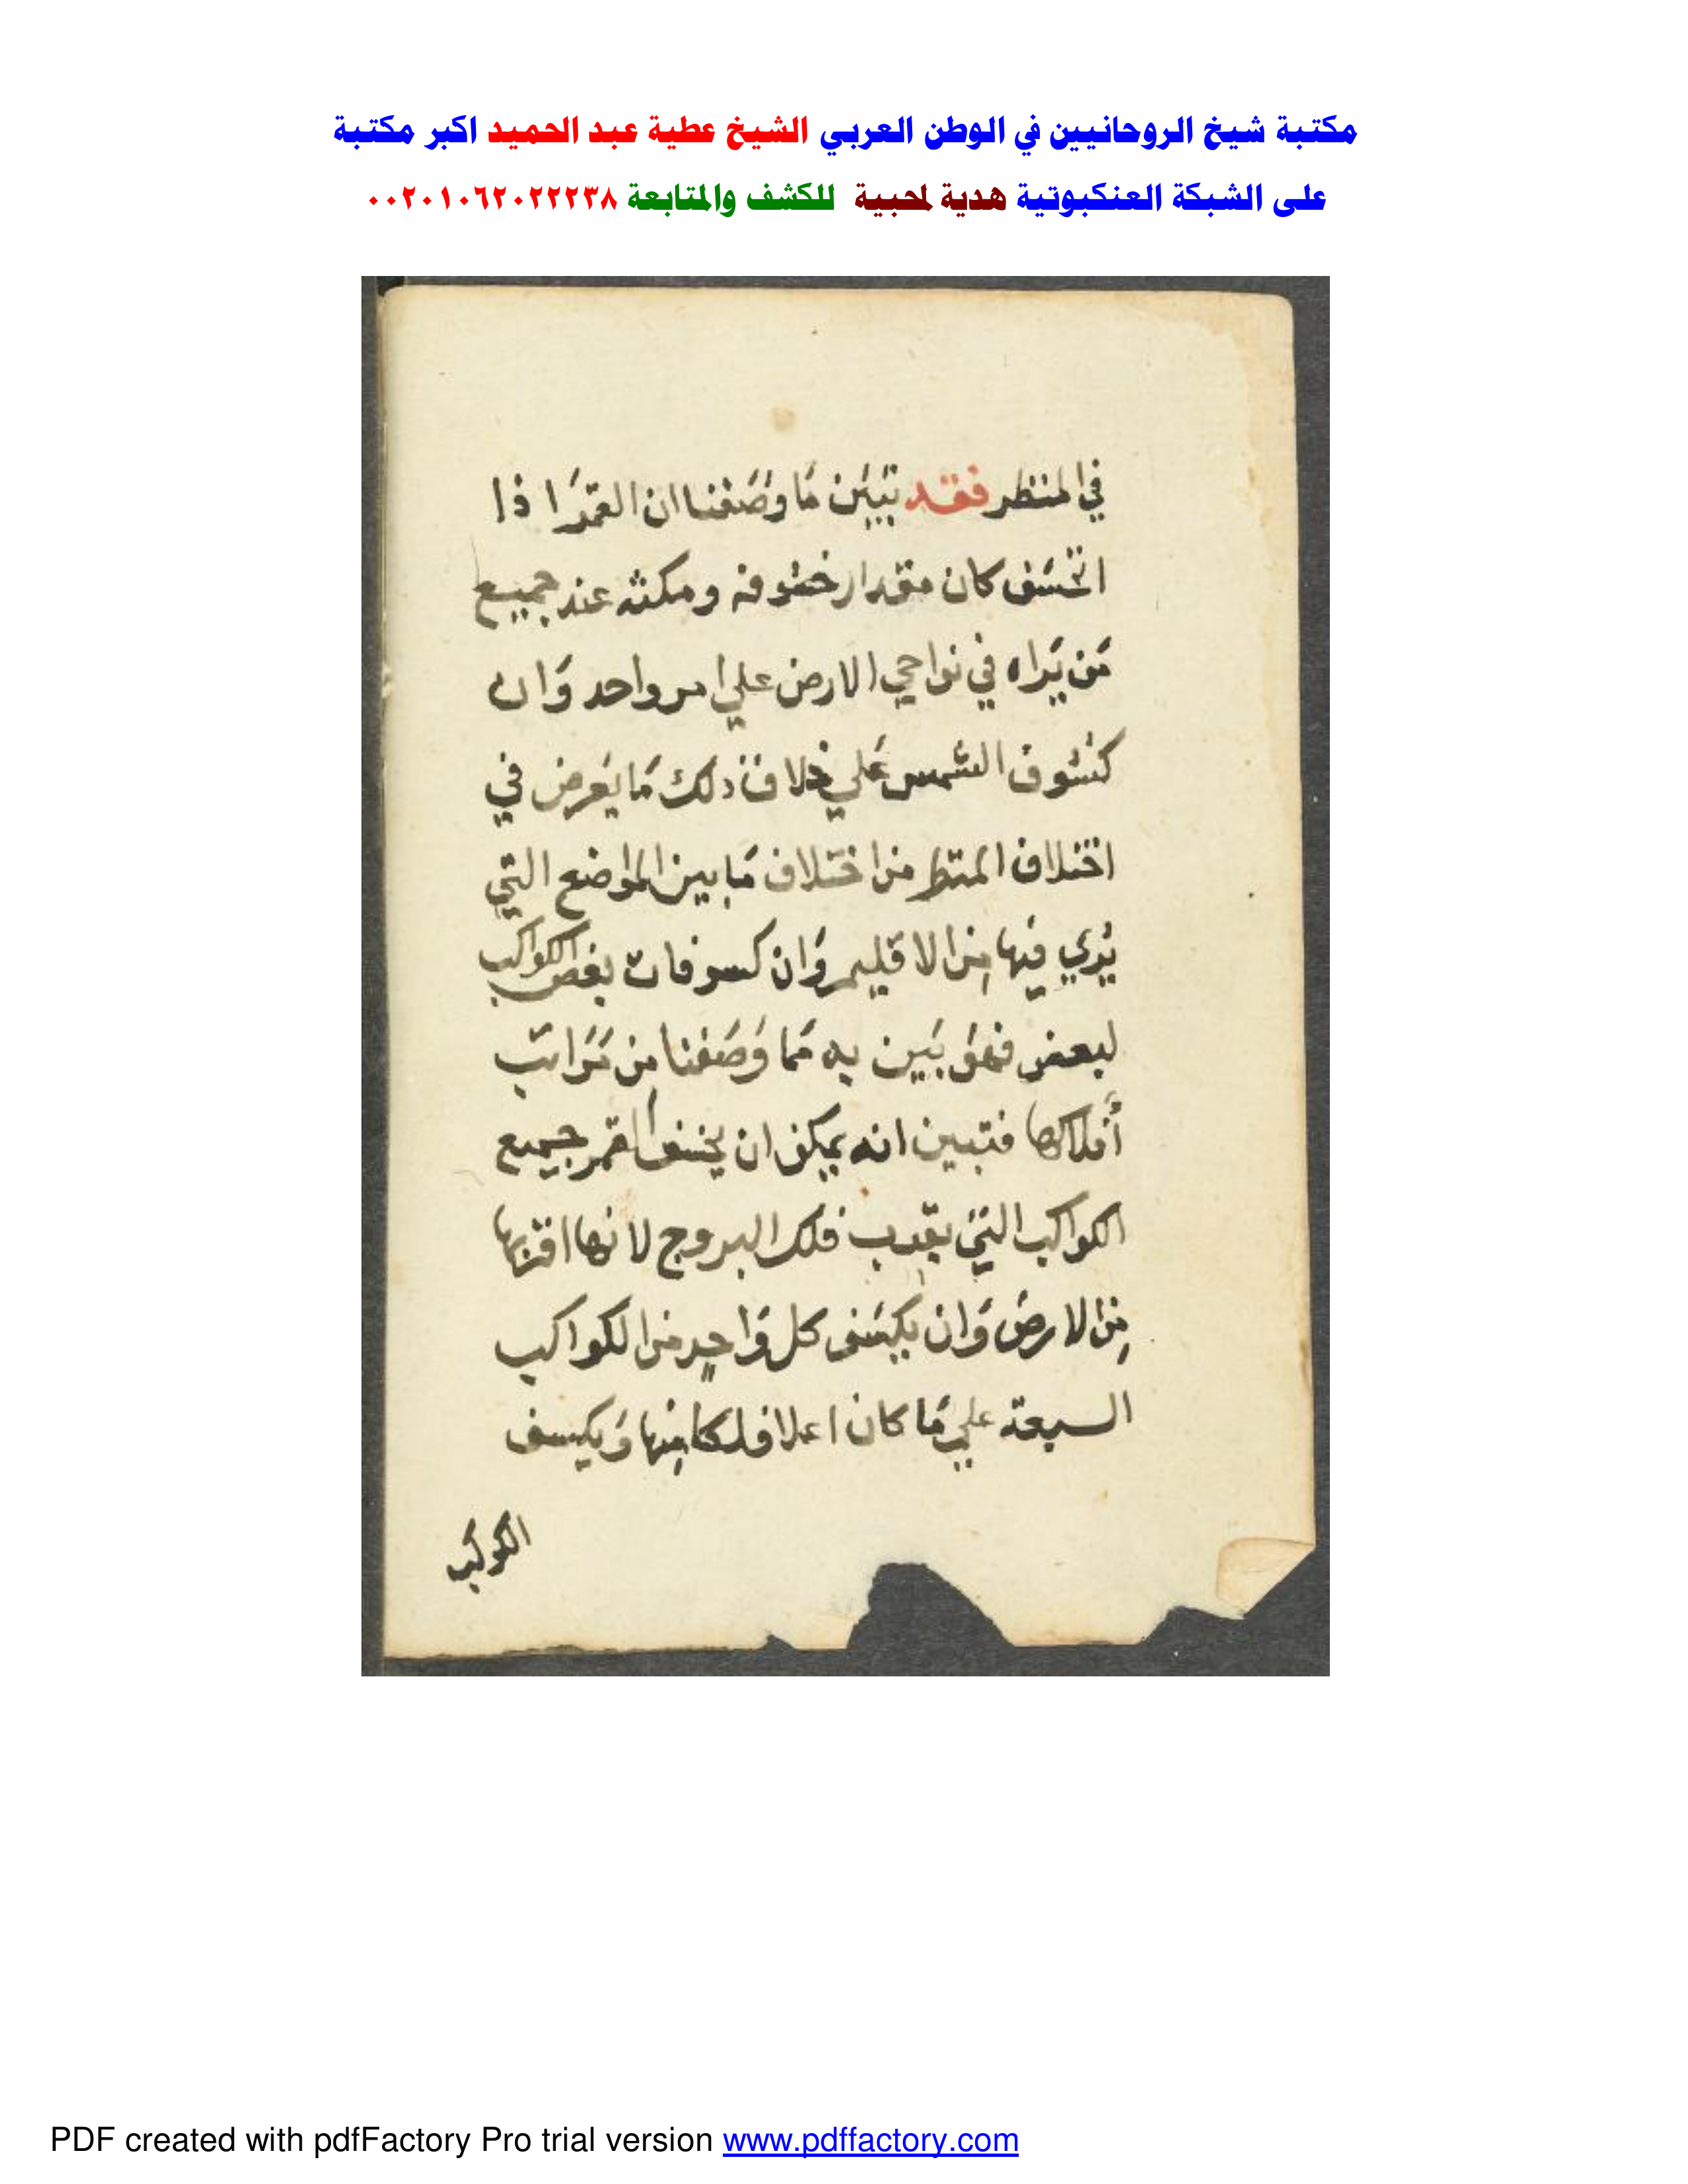 مكتبة شيخ الروحانيين في الوطن العربي الشيخ عطية عبد الحميد اكبر مكتبة
على الشبكة العنكبوتية هدية لمحبية للكشف والمتابعة ٠٠٢٠١٠٦٢٠٢٢٢٣٨
في المنظر فقد تبين مما وصفنا ان القمر اذا
انخسف كان مقدار خسوفه ومكثه عند جميع
من يراه في نواحي الارض علي امر واحد وان
كسوف الشمس علي خلاف ذلك مما يعرض في
اختلاف المنظر من اختلاف ما بين المواضع التي
يري فيها من الاقليم وان كسوفات بعض الكواكب
لبعض فهو بين به مما وصفنا من مراتب
أفلاكها فتبين انه يمكن ان يخسف القمر جميع
الكواكب التي بقرب فلك البروج لانها اقربها
من الارض وان يكسف كل واحد من الكواكب
السبعة علي ما كان اعلا فلكا منها ويكسف
الكوكب
PDF created with pdfFactory Pro trial version www.pdffactory.com